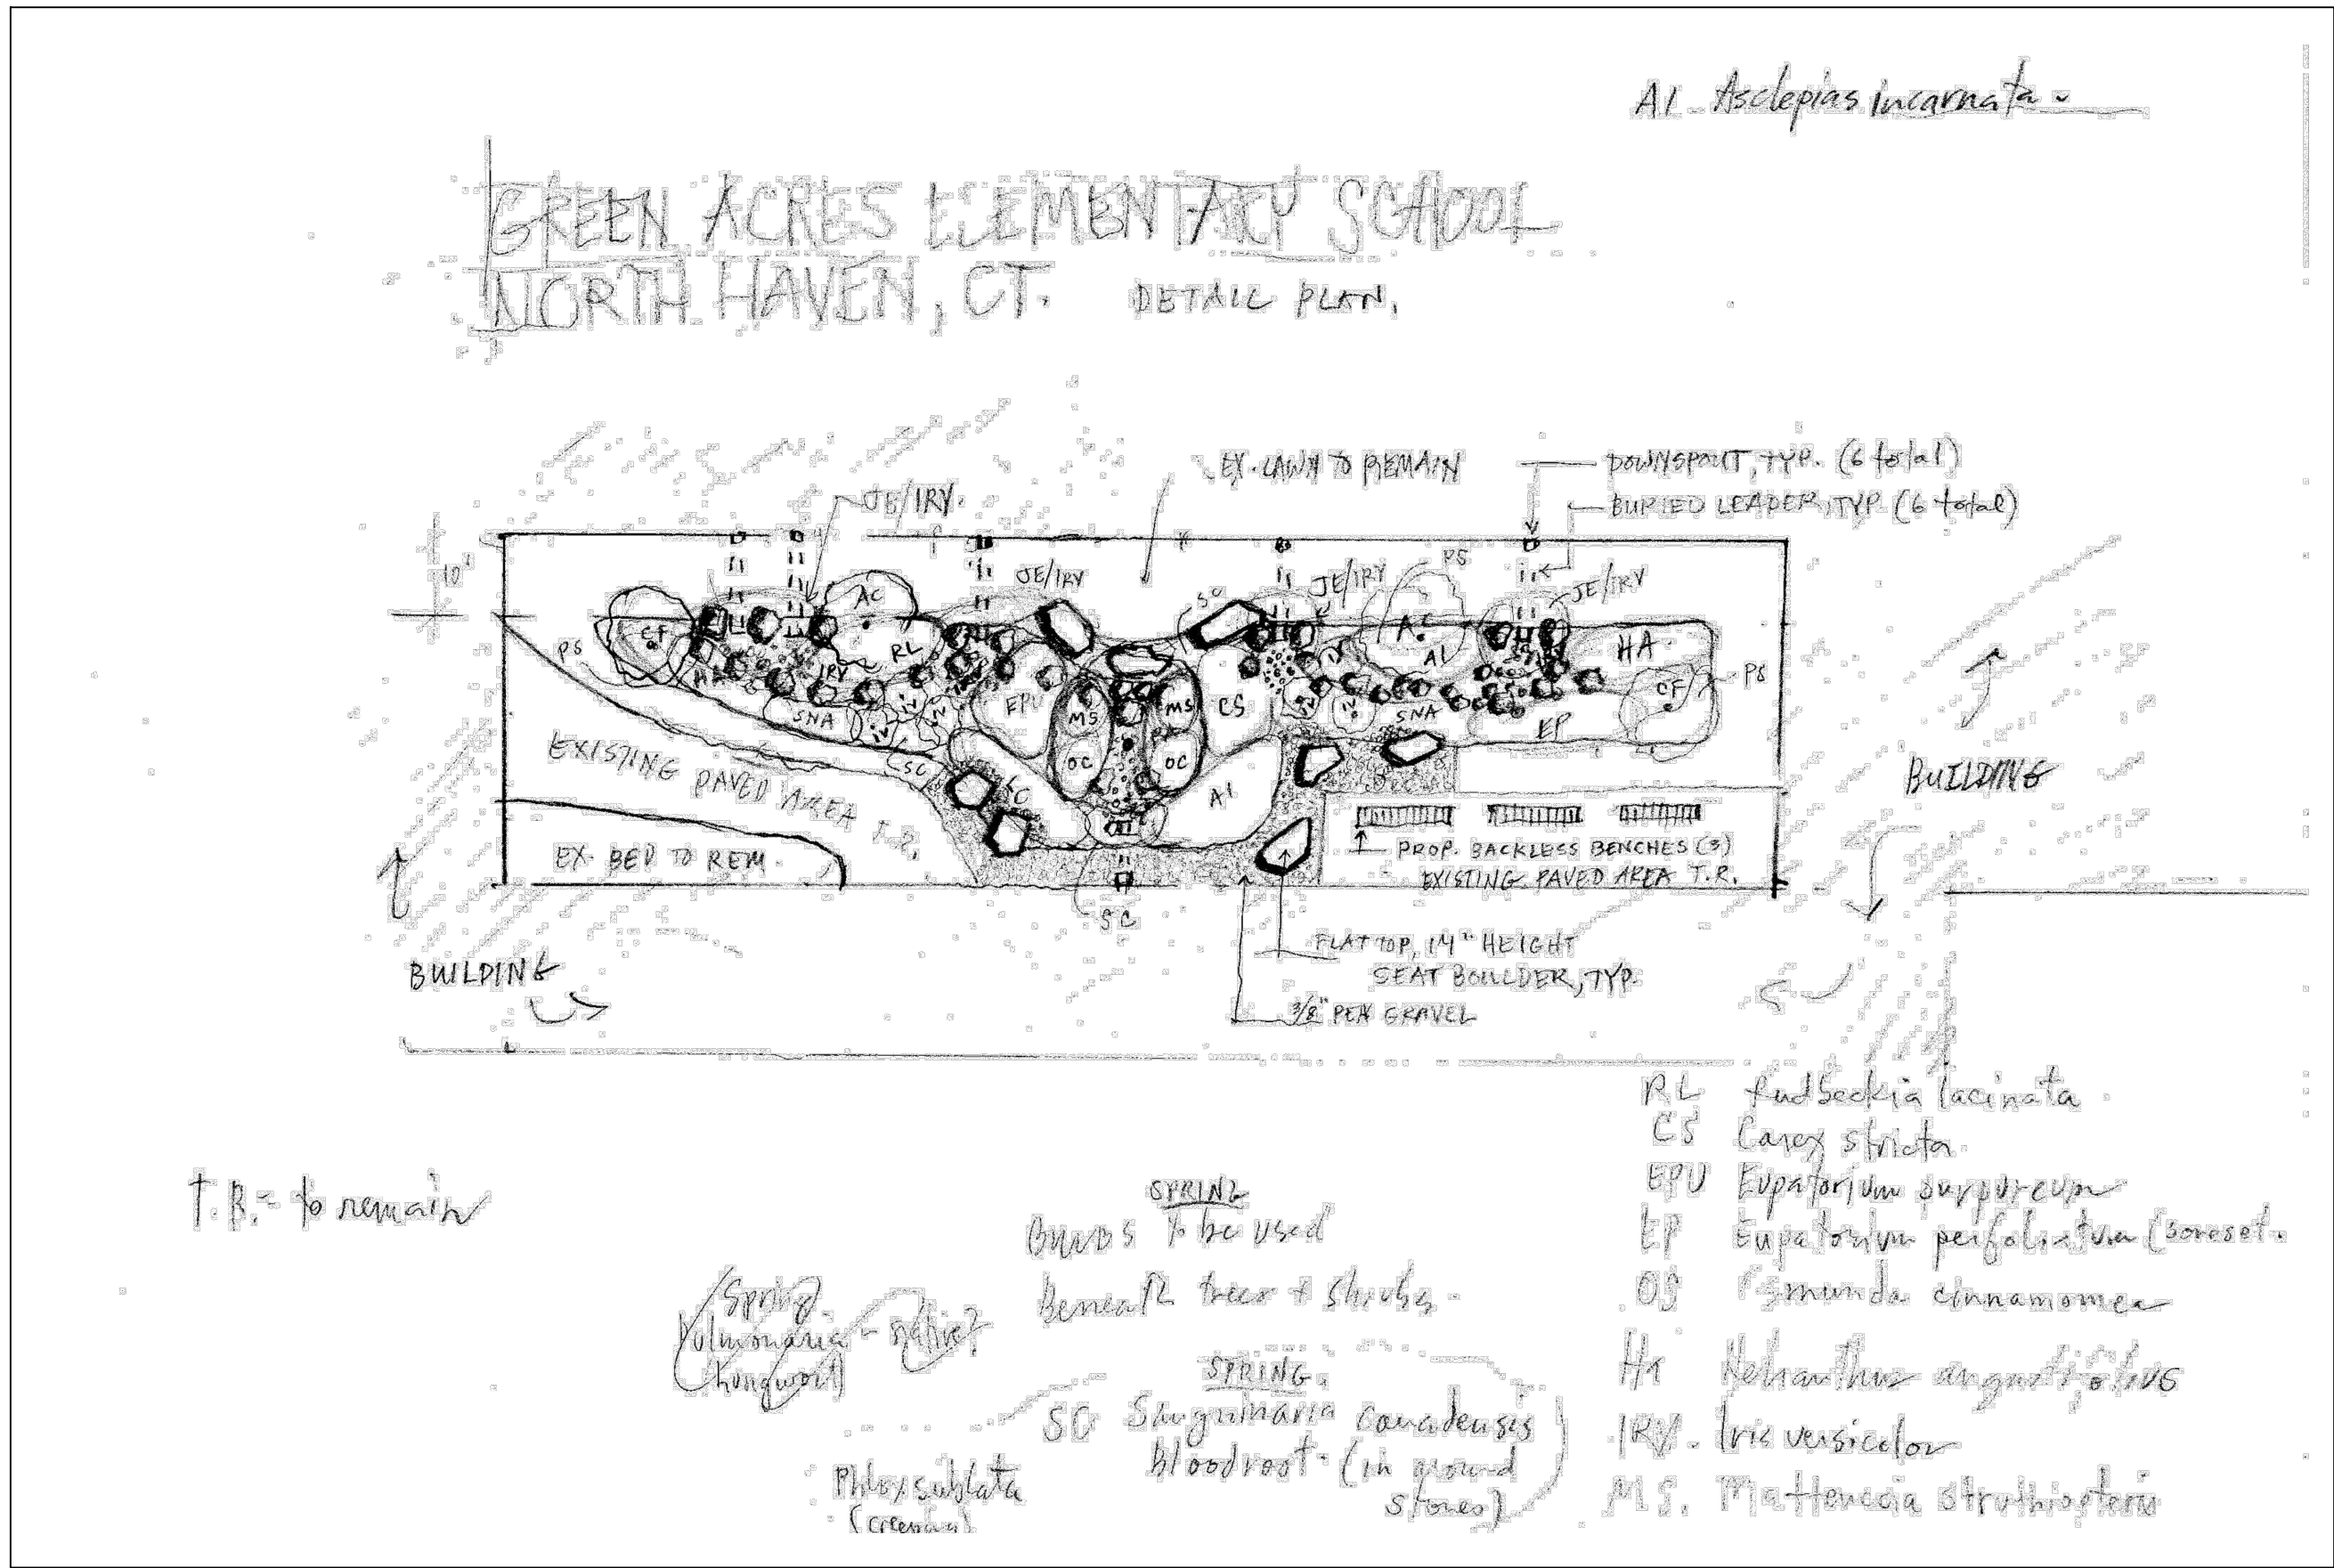 A1 - Asclepias incarnata -
GREEN ACRES ELEMENTARY SCHOOL
NORTH HAVEN, CT. DETAIL PLAN.
EX. LAWN TO REMAIN
DOWNSPOUT, TYP. (6 total)
BURIED LEADER, TYP. (6 total)
JE/IRV.
10'
JE/IRV
JE/IRV
PS
JE/IRV
AC
SC
CF
PS
RL
AC
AI
HA
HA
IRV
IV
PS
EPU
MS
MS
CS
CF
SNA
IV
IV
IV
IV
SNA
EP
OC
OC
SC
AI
EXISTING PAVED AREA T.R.
BUILDING
EX. BED TO REM.
PROP. BACKLESS BENCHES (3)
EXISTING PAVED AREA T.R.
SC
FLAT TOP, 14" HEIGHT
SEAT BOULDER, TYP.
BUILDING
3/8" PEA GRAVEL
RL Rudbeckia lacinata
CS Carex stricta
EPU Eupatorium purpureum
EP Eupatorium perfoliatum (boneset.
OS Osmunda cinnamomea
HA Helianthus angustifolius
IRV. Iris versicolor
MS. Matteuccia struthiopteris
T.R. = to remain
SPRING
Bulbs to be used
Beneath trees + shrubs.
Spring
Pulmonaria - native?
Lungwort
SPRING.
SC Sanguinaria canadensis
bloodroot. (in around
stones)
Phlox sublata
(creeping)